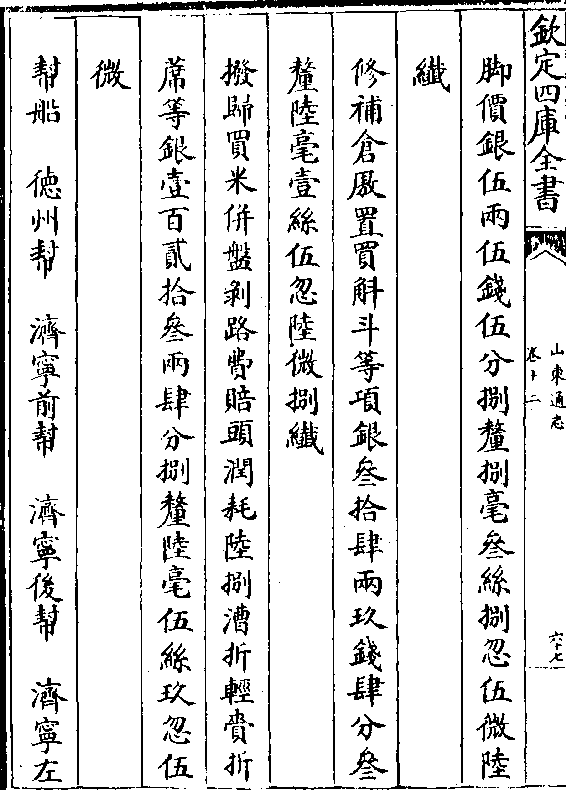 欽定四庫全書
山東通志
卷十二
六十七
脚價銀伍兩伍錢伍分捌釐捌毫叄絲捌忽伍微陸
纖
修補倉厫置買斛斗等項銀叄拾肆兩玖錢肆分叄
釐陸毫壹絲伍忽陸微捌纖
撥歸買米併盤剥路費賠頭潤耗陸捌漕折輕賫折
蓆等銀壹百貳拾叄兩肆分捌釐陸毫伍絲玖忽伍
微
幇船 徳州幇 濟寧前幇 濟寧後幇 濟寧左